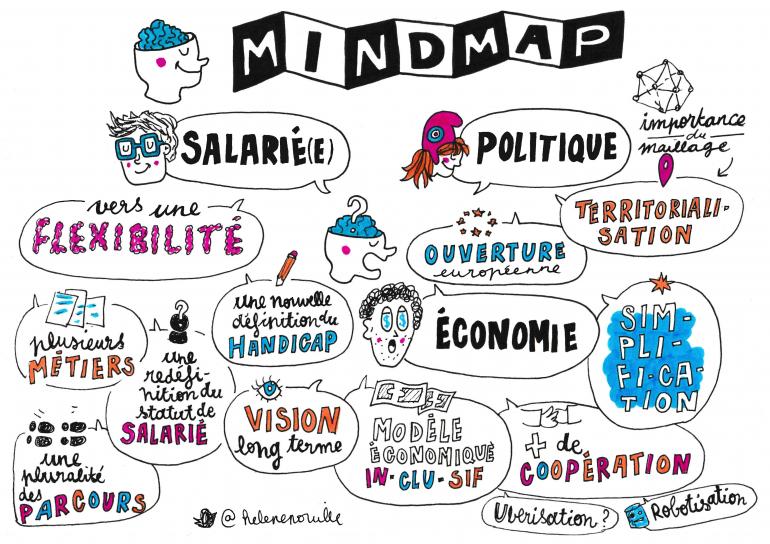 MINDMAP
SALARIÉ(E)
POLITIQUE
importance
du
maillage
TERRITORIALI-
SATION
vers une
FLEXIBILITÉ
?
OUVERTURE
européenne
une nouvelle
définition du
HANDICAP
ÉCONOMIE
SIM-
PLI-
FI-CA-
TION
plusieurs
MÉTIERS
?
une
redéfi-
nition du
statut de
SALARIÉ
VISION
long terme
MODÈLE
ÉCONOMIQUE
IN-CLU-SIF
+ de
COOPÉRATION
une
pluralité
des
PARCOURS
Uberisation?
Robotisation
@helenepouille